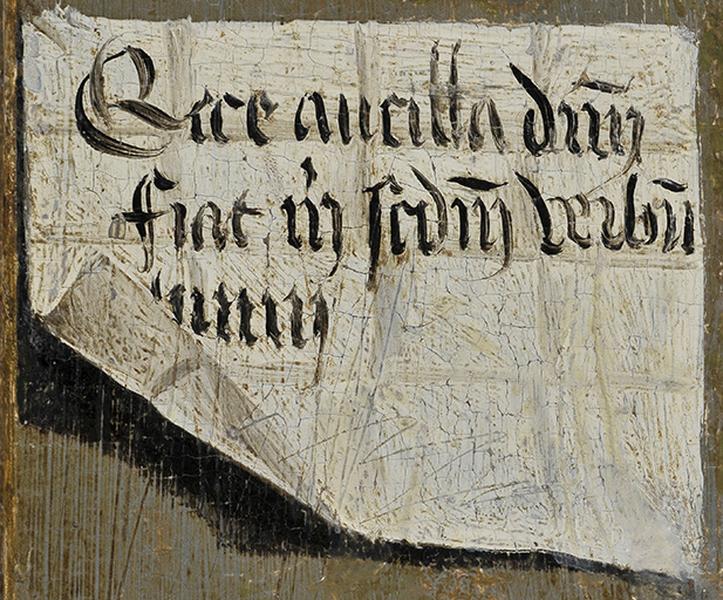 Ecce ancilla dn̄ȷ
fiat m̊ scdm̄ verbū
tuum